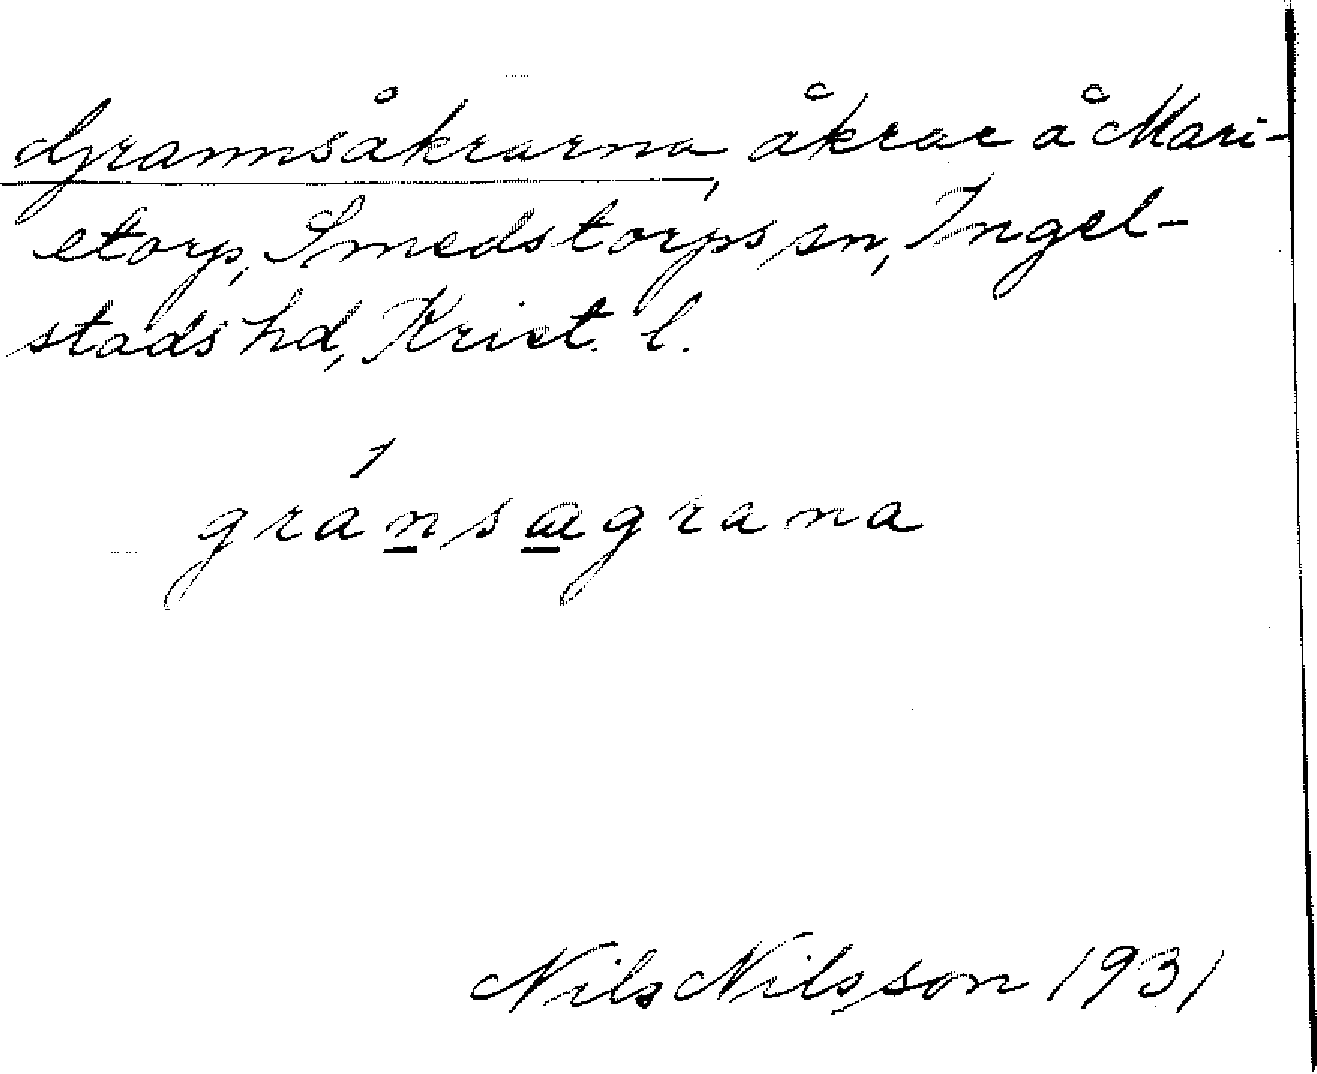 Grannsåkrarna, åkrar å Mari-
etorp, Smedstorps sn, Ingel-
stads hd, Krist. l.
gránsægrana
Nils Nilsson 1931